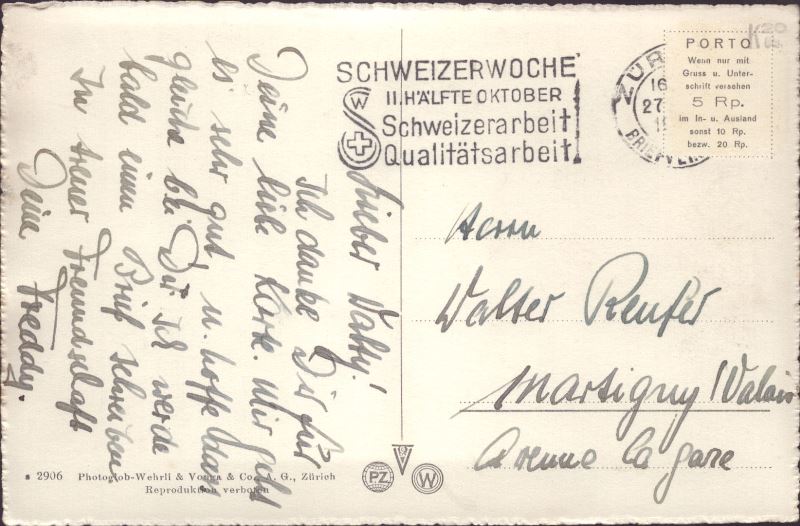 Lieber Walty!
Ich danke Dir für
Deine liebe Karte. Mir geht
es sehr gut u. hoffe das
gleiche bei Dir. Ich werde
bald einen Brief schreiben
In treuer Freundschaft
Deine Freddy.
SCHWEIZERWOCHE
II. HÄLFTE OKTOBER
Schweizerarbeit
Qualitätsarbeit
W
ZÜR
16
27
BRIEFVER
PORTO
Wenn nur mit
Gruss u. Unter-
schrift versehen
5 Rp.
im In- u. Ausland
sonst 10 Rp.
bezw. 20 Rp.
Herrn
Walter Renfer
Martigny / Valais
Avenue la gare
2906 Photoglob-Wehrli & Vouga & Co. A. G., Zürich
Reproduktion verboten
PZ
W